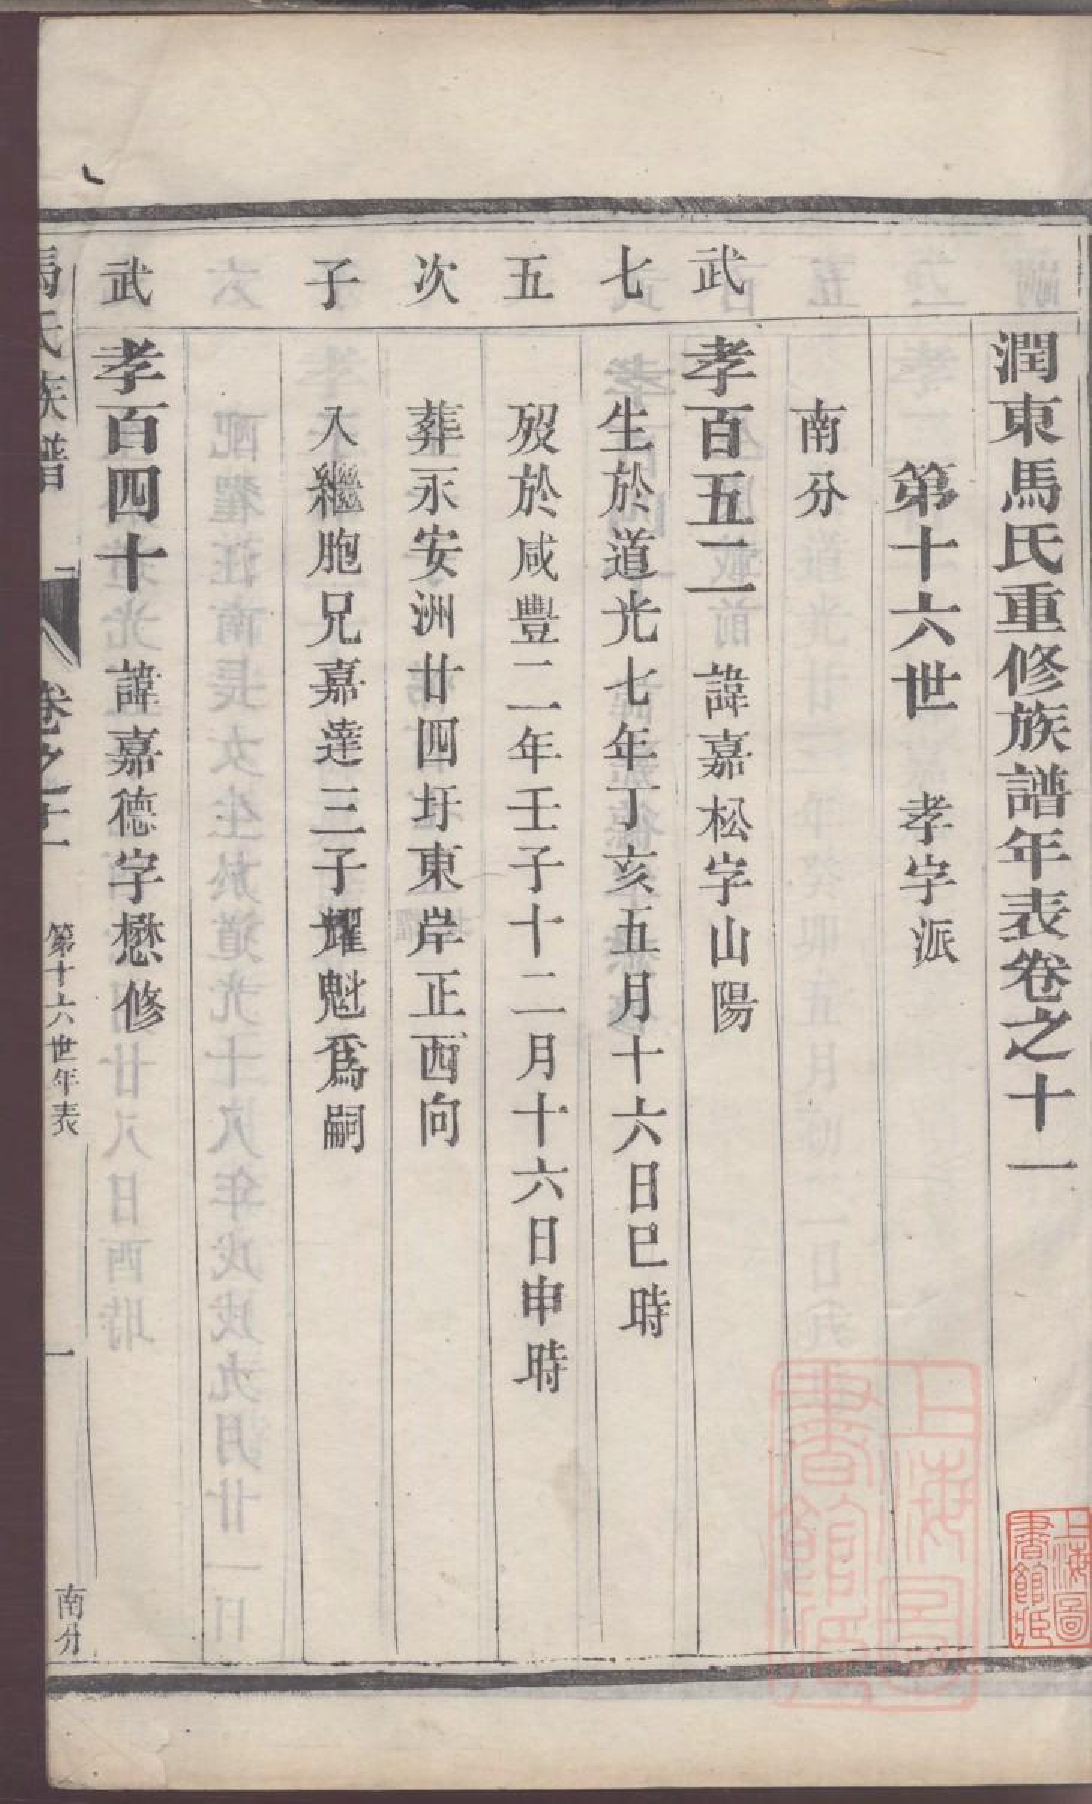 潤東馬氏重修族譜年表卷之十一
第十六世 孝字派
南分
武 孝百五二 諱嘉松字山陽
七 生於道光七年丁亥五月十六日巳時
五 歿於咸豐二年壬子十二月十六日申時
次 葬永安洲廿四圩東岸正西向
子 入繼胞兄嘉達三子耀魁爲嗣
武 孝百四十 諱嘉德字懋修
馬氏族譜 卷之十一 第十六世年表 一 南分
上海圖書館藏
上海圖書館藏